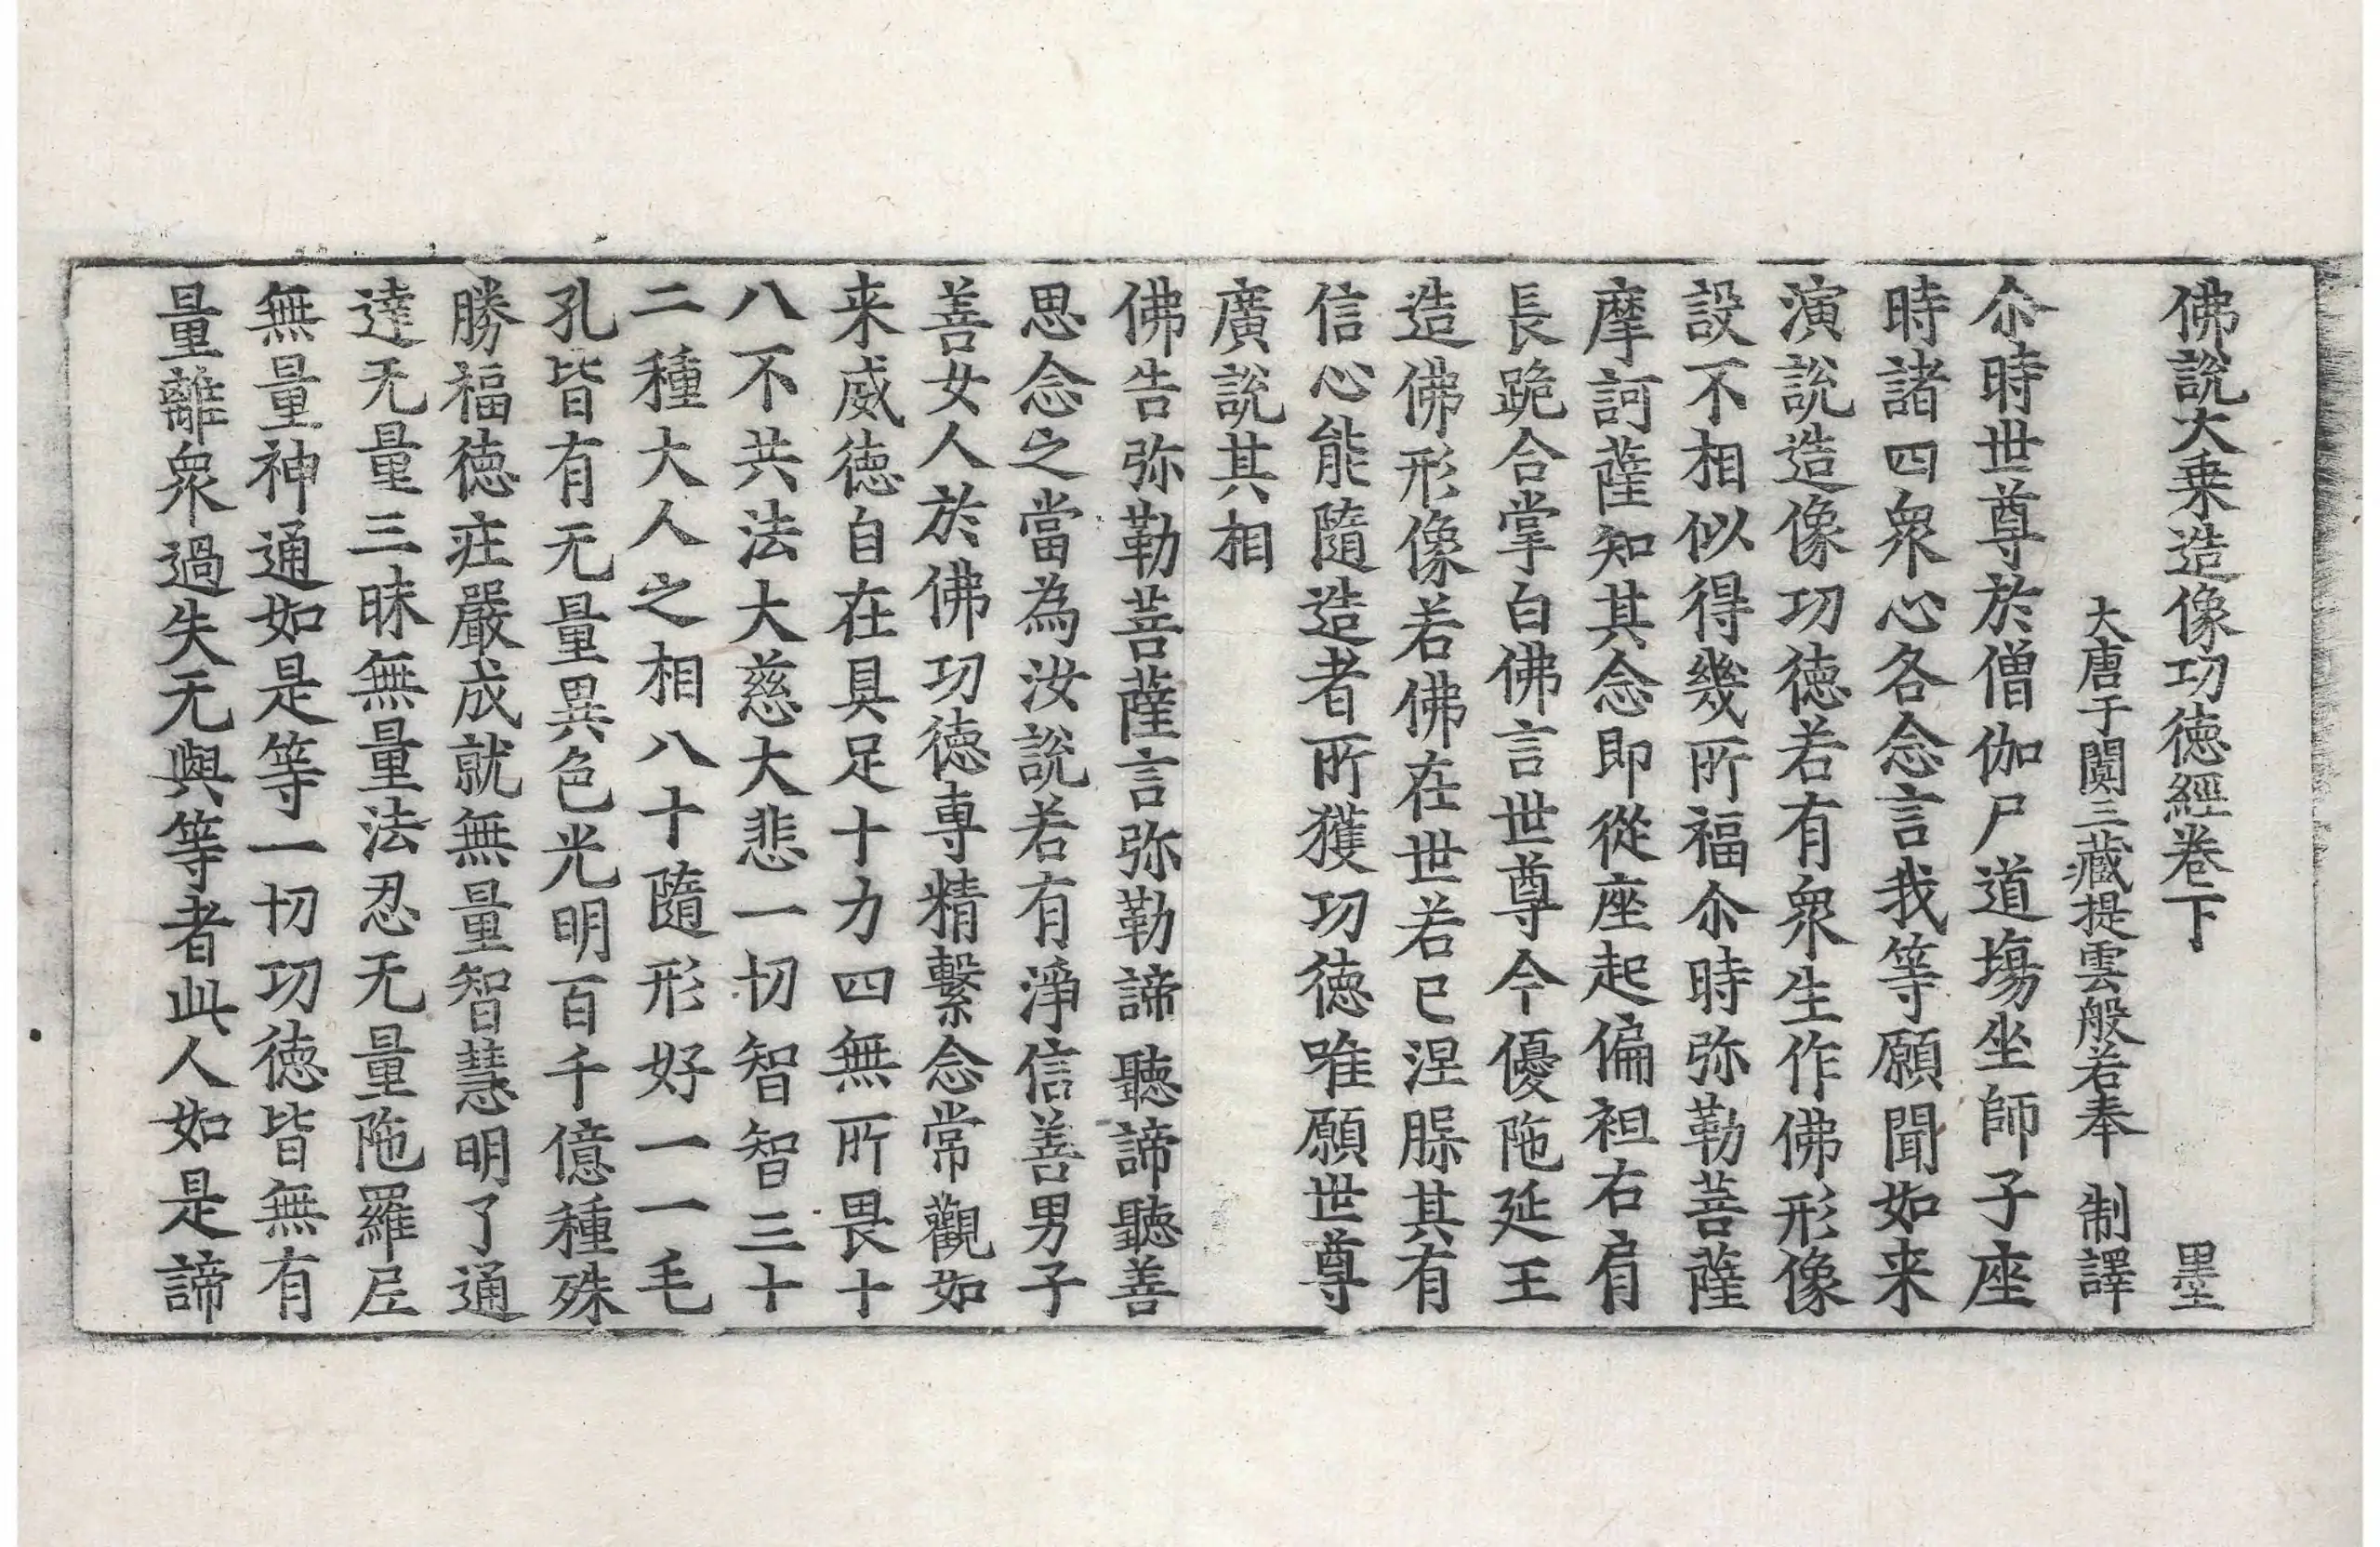 佛說大乗造像功徳經卷下　墨
大唐于闐三藏提雲般若奉　制譯
尒時世尊於僧伽尸道塲坐師子座
時諸四衆心各念言我等願聞如来
演說造像功徳若有衆生作佛形像
設不相似得幾所福尒時弥勒菩薩
摩訶薩知其念即從座起偏袒右肩
長跪合掌白佛言世尊今優陁延王
造佛形像若佛在世若已涅槃其有
信心能隨造者所獲功徳唯願世尊
廣說其相
佛告弥勒菩薩言弥勒諦聽諦聽善
思念之當為汝說若有淨信善男子
善女人於佛功徳專精繫念常觀如
来威徳自在具足十力四無所畏十
八不共法大慈大悲一切智智三十
二種大人之相八十隨形好一一毛
孔皆有无量異色光明百千億種殊
勝福徳疘嚴成就無量智慧明了通
達无量三昧無量法忍无量陁羅尼
無量神通如是等一切功徳皆無有
量離衆過失无與等者此人如是諦